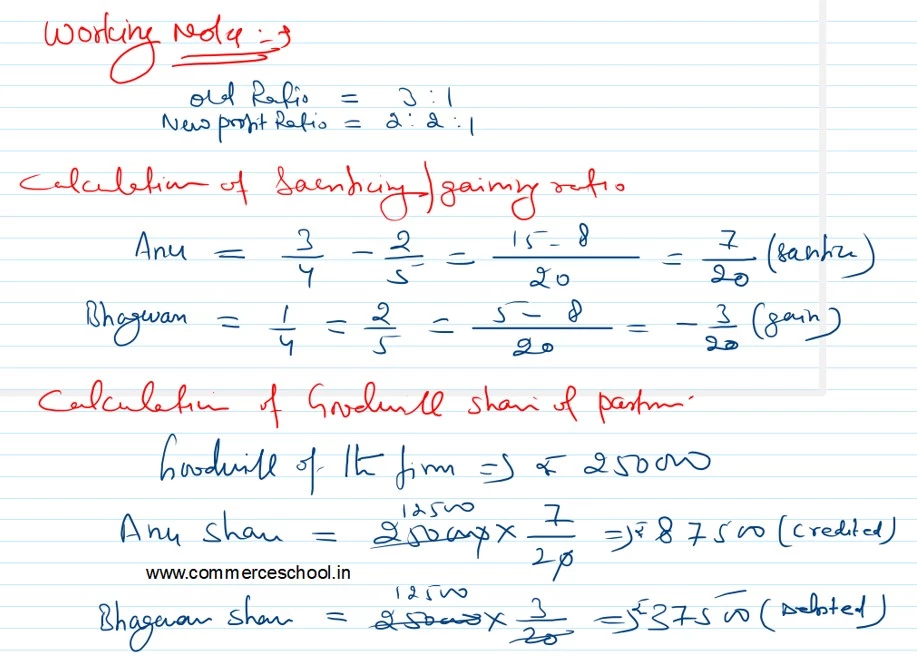 Working Note :-
Old Ratio = 3 : 1
New profit Ratio = 2 : 2 : 1
Calculation of Sacrificing / gaining ratio
Anu = 3/4 - 2/5 = 15 - 8 / 20 = 7/20 (Sacrifice)
Bhagwan = 1/4 = 2/5 = 5 - 8 / 20 = - 3/20 (gain)
Calculation of Goodwill share of partner
Goodwill of the firm => ₹ 250000
12500
Anu share = 250000 × 7/20 => ₹ 87500 (Credited)
www.commerceschool.in
12500
Bhagwan share = 250000 × 3/20 => ₹ 37500 (Debited)